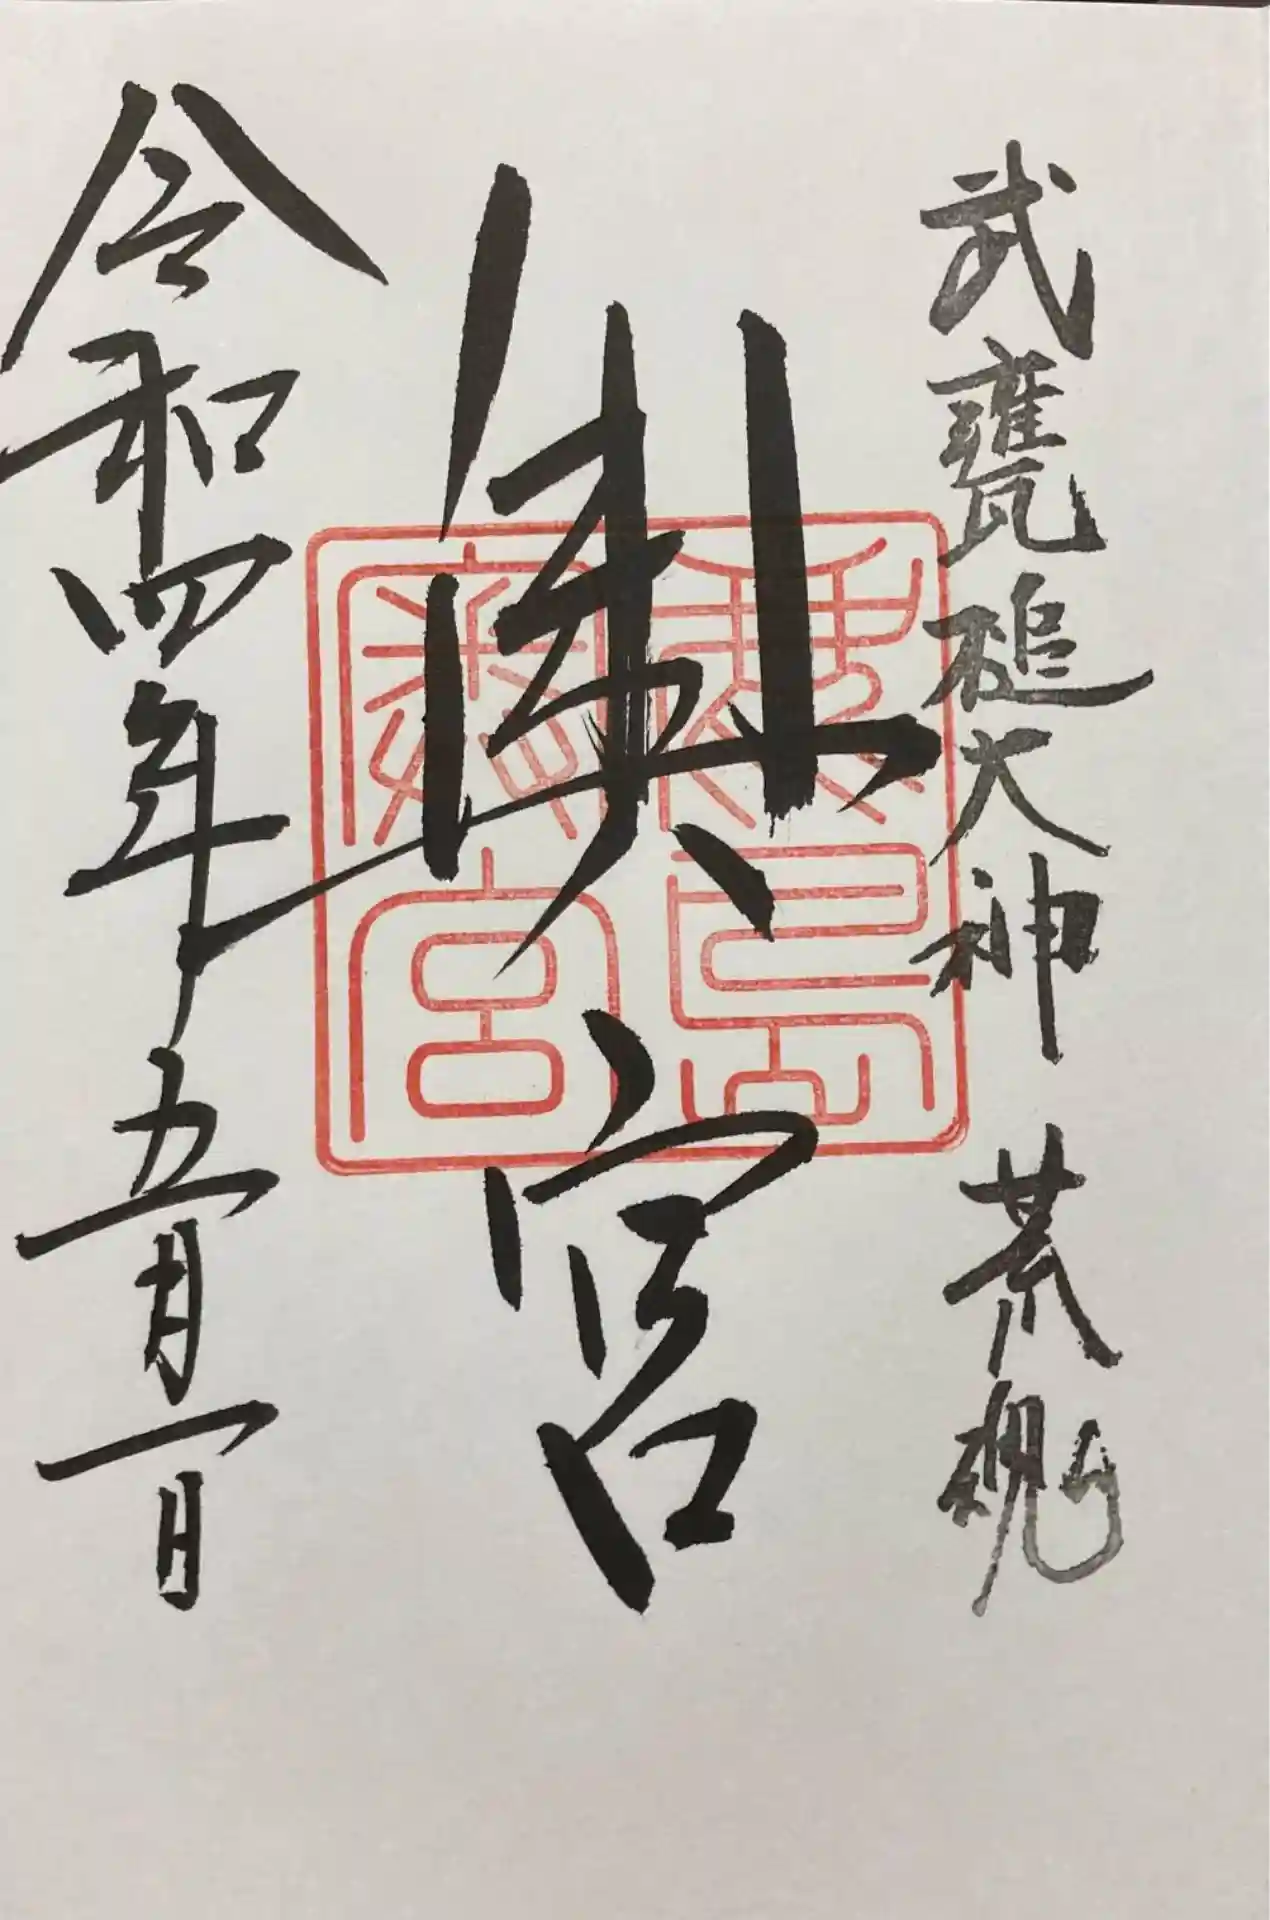 武甕槌大神 荒魂
奥宮
鹿島
奥宮
令和四年五月一日